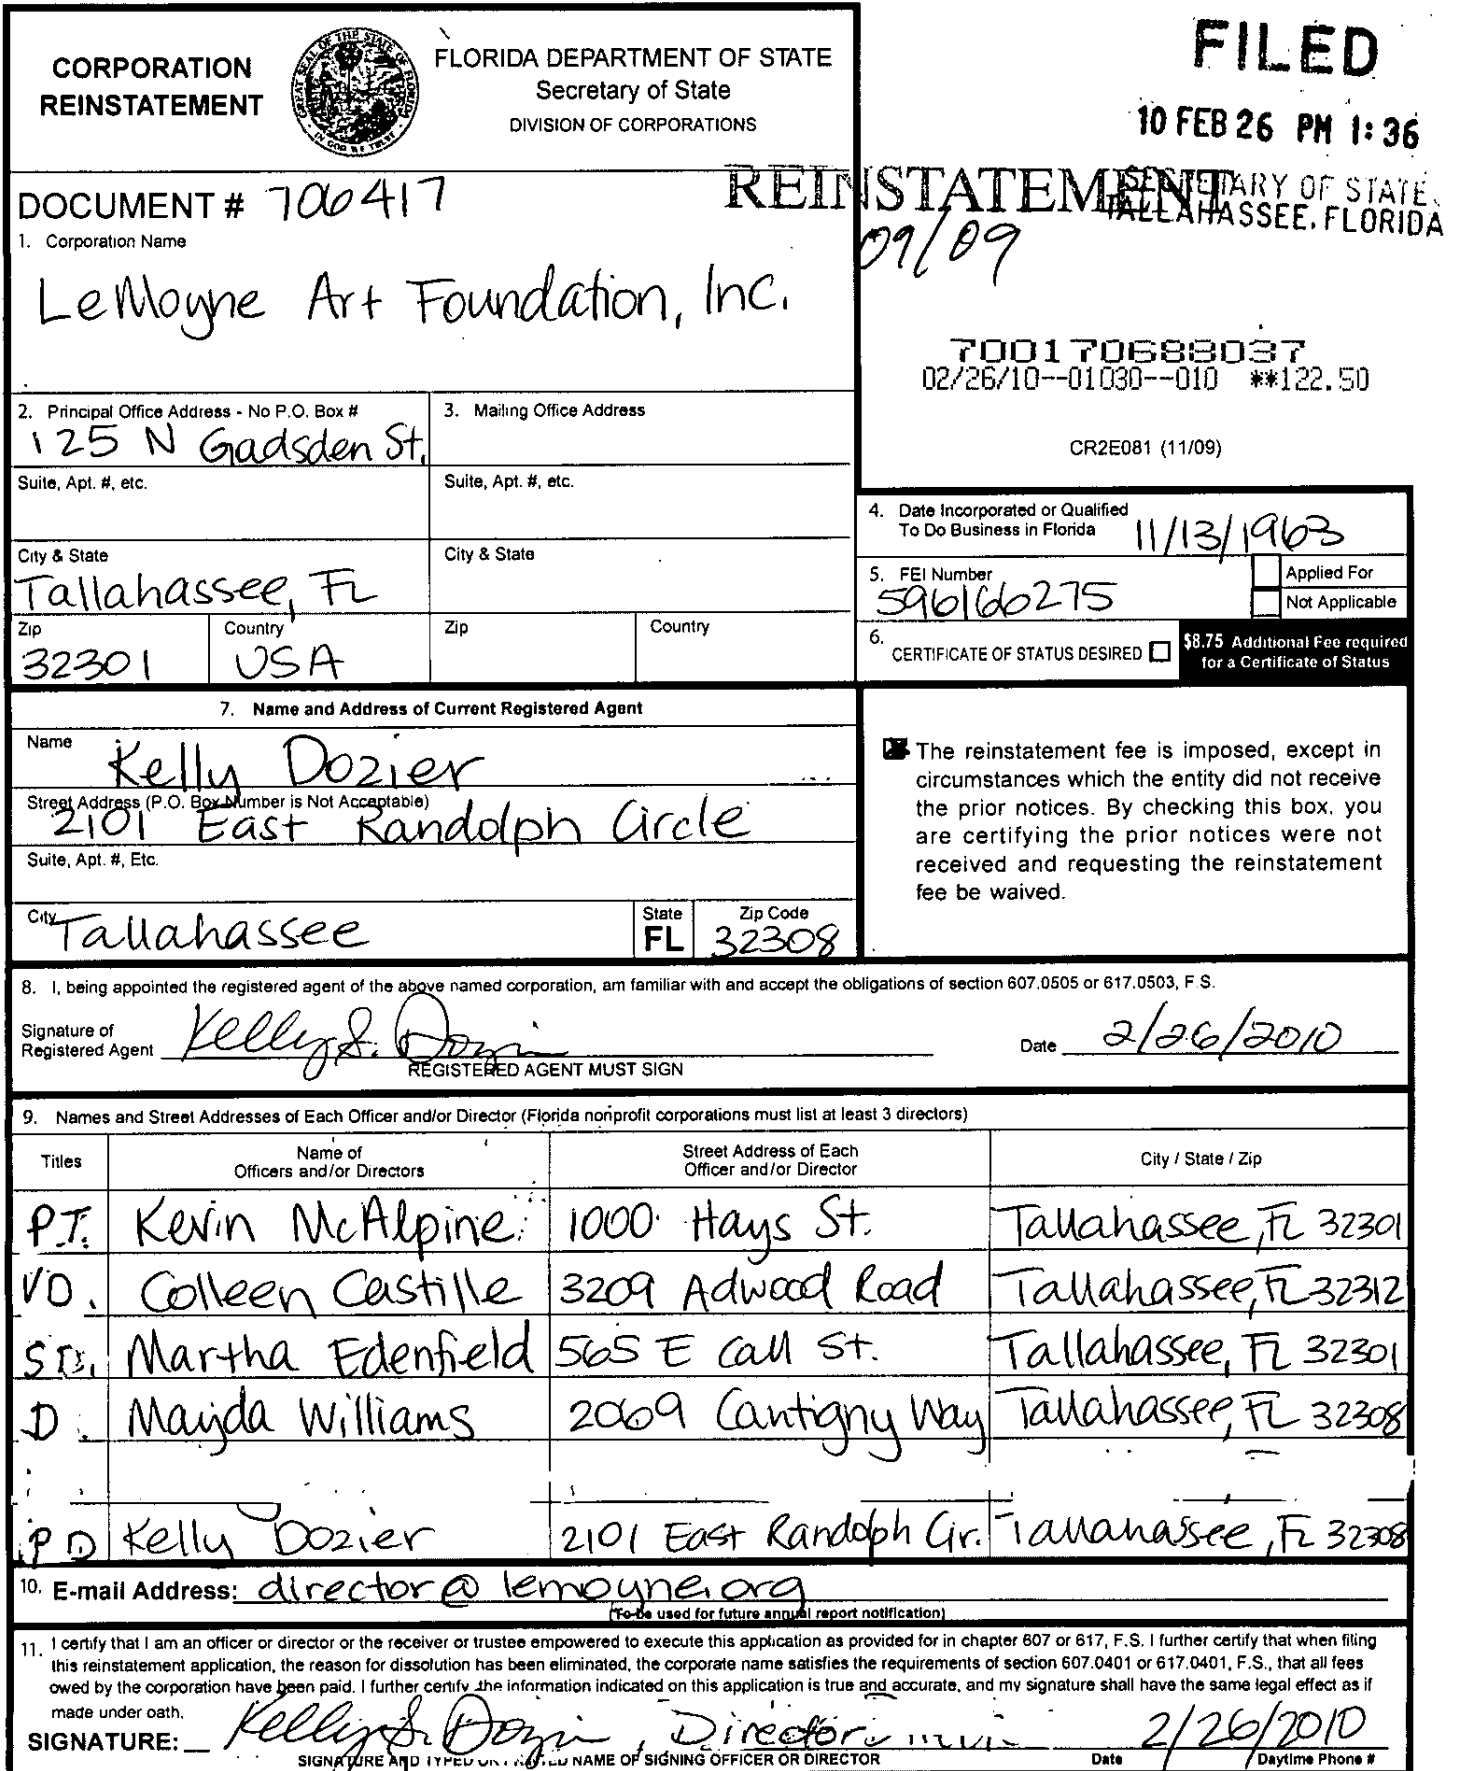 CORPORATION REINSTATEMENT
GREAT SEAL OF THE STATE OF FLORIDA
IN GOD WE TRUST
FLORIDA DEPARTMENT OF STATE
Secretary of State
DIVISION OF CORPORATIONS
FILED
10 FEB 26 PM 1:36
SECRETARY OF STATE
TALLAHASSEE, FLORIDA
REINSTATEMENT
09/09
DOCUMENT # 706417
1. Corporation Name
LeMoyne Art Foundation, Inc.
700170688037
02/26/10--01030--010 **122.50
CR2E081 (11/09)
2. Principal Office Address - No P.O. Box #
125 N Gadsden St.
3. Mailing Office Address
Suite, Apt. #, etc.
Suite, Apt. #, etc.
City & State
Tallahassee, FL
City & State
Zip
32301
Country
USA
Zip
Country
4. Date Incorporated or Qualified
To Do Business in Florida 11/13/1963
5. FEI Number
596166275
Applied For
Not Applicable
6. CERTIFICATE OF STATUS DESIRED
$8.75 Additional Fee required
for a Certificate of Status
7. Name and Address of Current Registered Agent
Name
Kelly Dozier
Street Address (P.O. Box Number is Not Acceptable)
2101 East Randolph Circle
Suite, Apt. #, Etc.
City
Tallahassee
State
FL
Zip Code
32308
The reinstatement fee is imposed, except in
circumstances which the entity did not receive
the prior notices. By checking this box, you
are certifying the prior notices were not
received and requesting the reinstatement
fee be waived.
8. I, being appointed the registered agent of the above named corporation, am familiar with and accept the obligations of section 607.0505 or 617.0503, F.S.
Signature of
Registered Agent Kelly S. Dozier
REGISTERED AGENT MUST SIGN
Date 2/26/2010
9. Names and Street Addresses of Each Officer and/or Director (Florida nonprofit corporations must list at least 3 directors)
Titles
Name of
Officers and/or Directors
Street Address of Each
Officer and/or Director
City / State / Zip
P.T. Kevin McAlpine 1000 Hays St. Tallahassee, FL 32301
VD. Colleen Castille 3209 Adwood Road Tallahassee, FL 32312
SD. Martha Edenfield 565 E Call St. Tallahassee, FL 32301
D. Mayda Williams 2069 Cantigny Way Tallahassee, FL 32308
PD Kelly Dozier 2101 East Randolph Cir. Tallahassee, FL 32308
10. E-mail Address: director@lemoyne.org
(To be used for future annual report notification)
11. I certify that I am an officer or director or the receiver or trustee empowered to execute this application as provided for in chapter 607 or 617, F.S. I further certify that when filing
this reinstatement application, the reason for dissolution has been eliminated, the corporate name satisfies the requirements of section 607.0401 or 617.0401, F.S., that all fees
owed by the corporation have been paid. I further certify the information indicated on this application is true and accurate, and my signature shall have the same legal effect as if
made under oath.
SIGNATURE: Kelly S. Dozier, Director 2/26/2010
SIGNATURE AND TYPED OR PRINTED NAME OF SIGNING OFFICER OR DIRECTOR
Date
Daytime Phone #